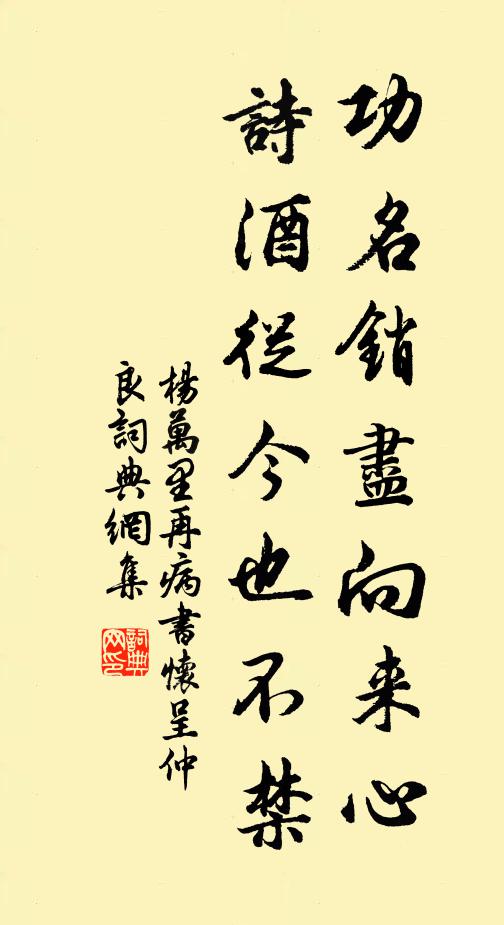 功名銷盡向来心
詩酒從今也不禁
楊萬里再病書懷呈仲
良詞典網集
詞典
网印